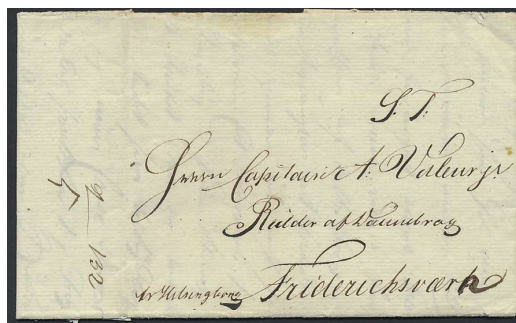 S. T.
Herrn Capitain A. Valeur jr
Ridder af Dannebrog
pr Helsingborg Friderichsværk
130